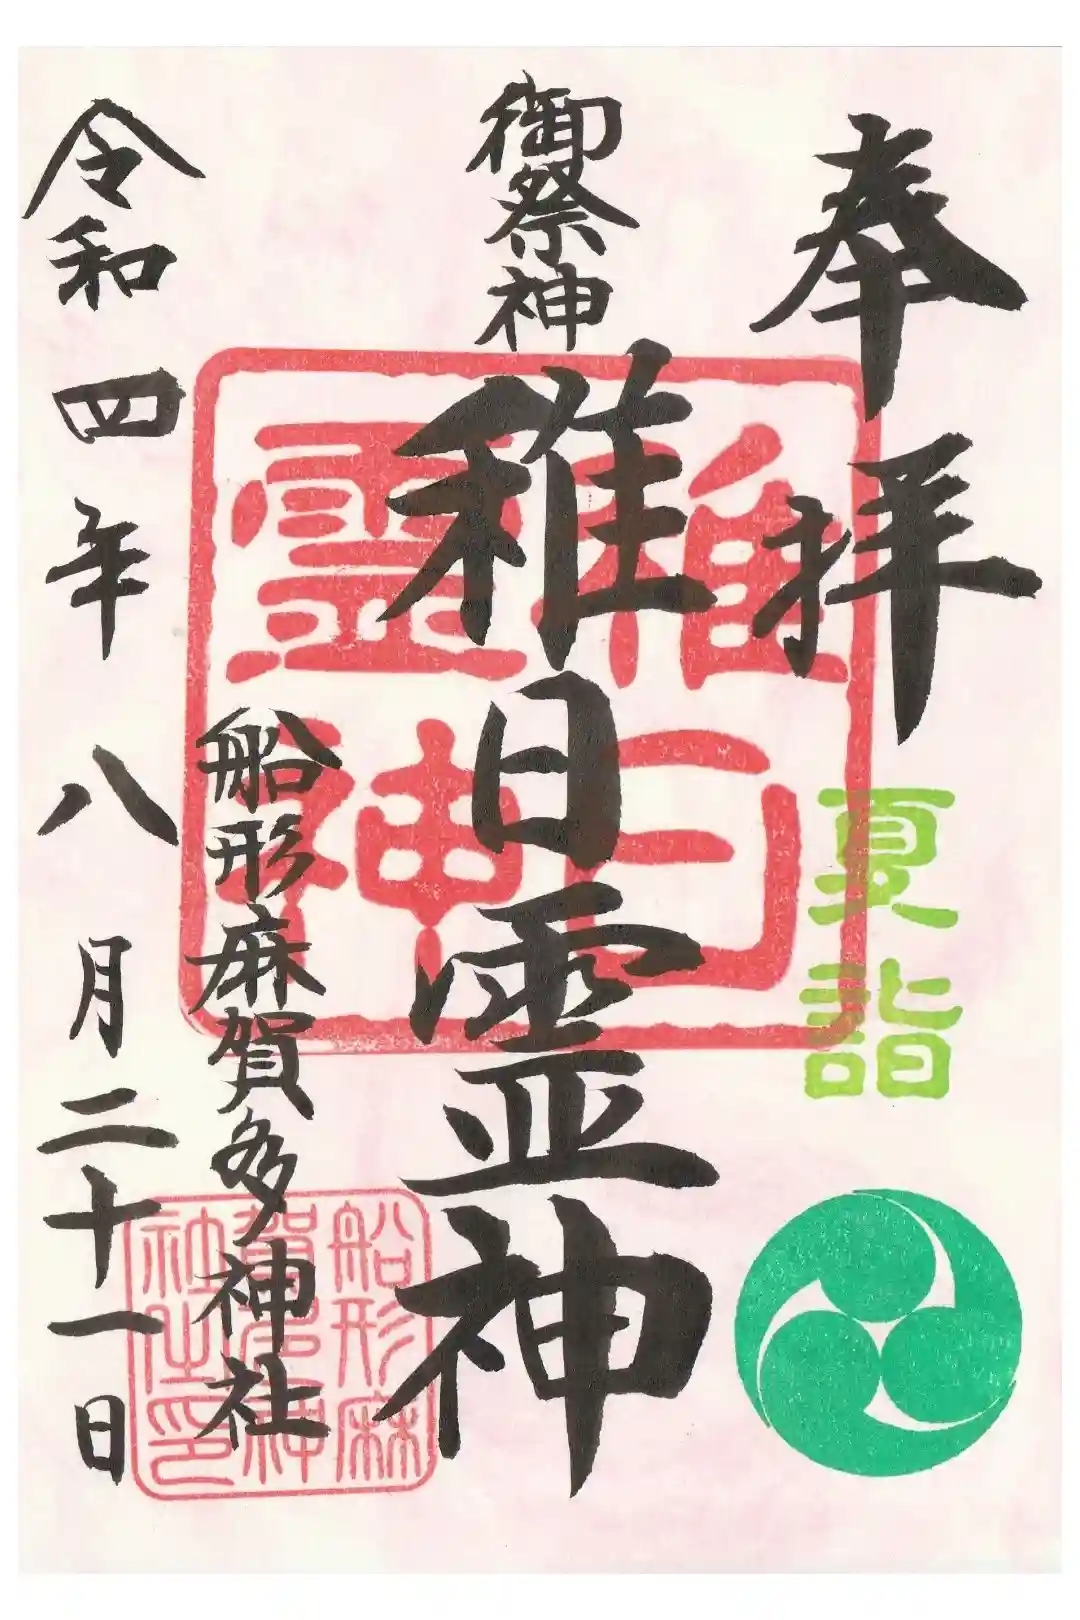 奉拝
夏詣
御祭神
稚日霊神
稚日
靈神
船形麻賀多神社
船形麻
賀多神
社之印
令和四年八月二十一日